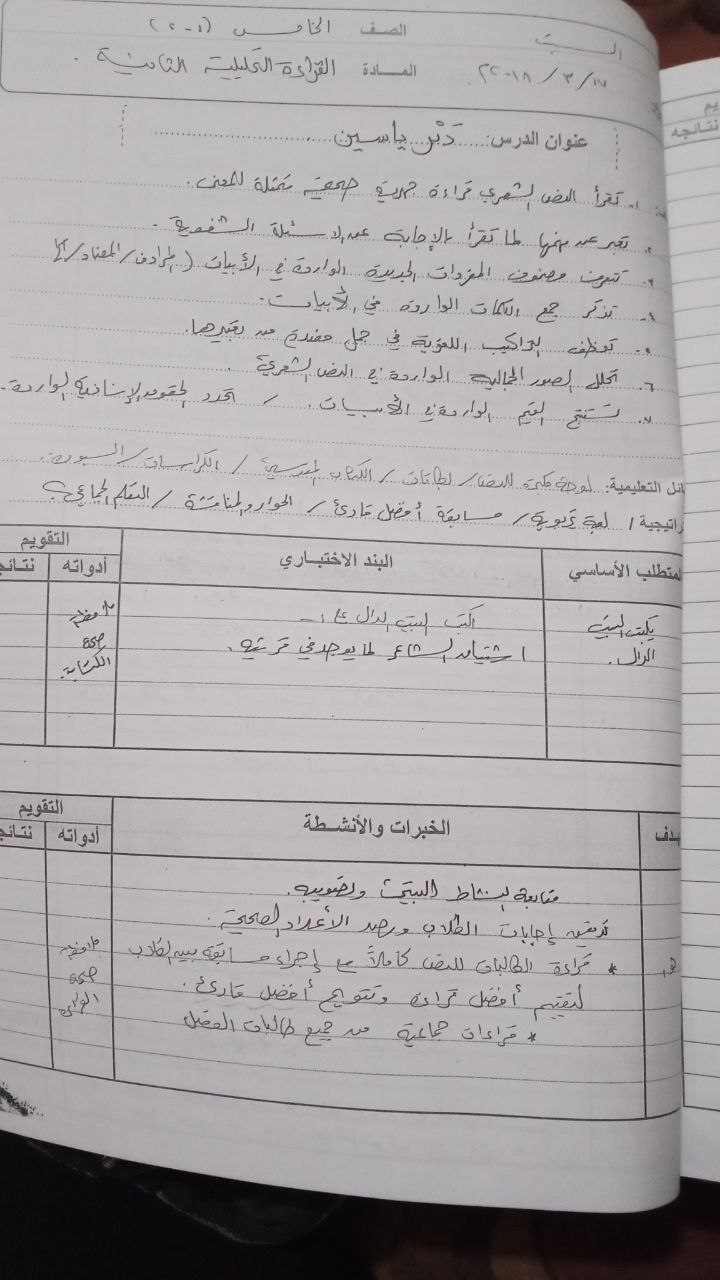 السبت الصف الخامس (١-٢)
١٧/ ٣ / ٢٠١٨ المادة القراءة التحليلية الثانية.
عنوان الدرس: دير ياسين
١- تقرأ النص الشعري قراءة جهرية صحيحة ممثلة للمعنى.
٢. تعبر عن فهمها لما تقرأ بالإجابة عن الاسئلة الشفوية.
٣. تتعرف المفردات الجديدة الواردة في الأبيات (المرادف/المضاد/
٤. تذكر جمع الكلمات الواردة في الأبيات.
٥. توظف التراكيب اللغوية في جمل مفيدة من تعبيرها.
٦. تحلل الصور الجمالية الواردة في النص الشعري.
٧. تستنتج القيم الواردة في الأبيات. / تحدد الحقوق الإنسانية الواردة.
ائل التعليمية: لوحة مكبرة للنص/ بطاقات /الكتاب المدرسي / الكراسات/السبورة.
راتيجية / لعبة تربوية/ مسابقة أفضل قارئ/ الحوار والمناقشة / التعلم الجماعي
متطلب الأساسي البند الاختباري التقويم
أدواته نتائج
يكتب البيت الدال. اكتب البيت الدال على :- ملاحظة صحة الكتابة.
اشتياق الشاعر لما يوجد في قريته.
هدف الخبرات والأنشطة التقويم
أدواته نتائج
متابعة النشاط البيتي وتصويبه.
تدقيق إجابات الطلاب ورصد الأعداد الصحيحة.
هـ١ * قراءة الطالبات للنص كاملاً مع إجراء مسابقة بين الطلاب ملاحظة صحة
لتقييم أفضل قراءة وتتويج أفضل قارئ.
* قراءات جماعية من جميع طالبات الفصل